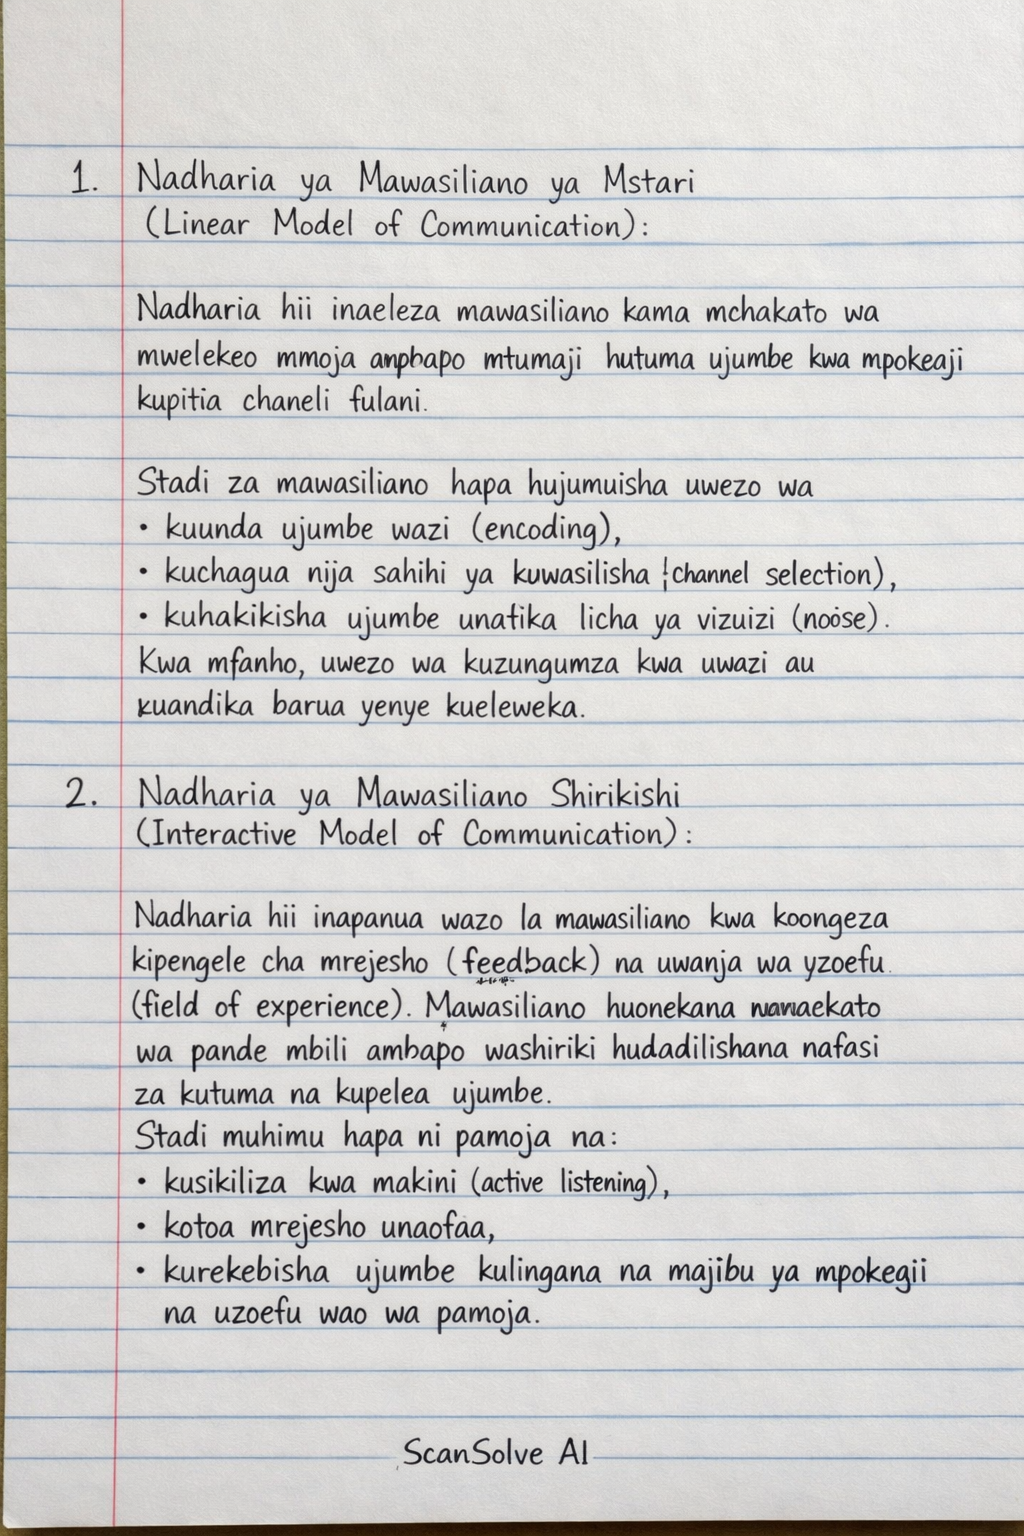 1. Nadharia ya Mawasiliano ya Mstari
(Linear Model of Communication):
Nadharia hii inaeleza mawasiliano kama mchakato wa
mwelekeo mmoja mtumaji hutuma ujumbe kwa mpokeaji
kupitia chaneli fulani.
Stadi za mawasiliano hapa hujumuisha uwezo wa
• kuunda ujumbe wazi (encoding),
• kuchagua nija sahihi ya kuwasilisha (channel selection),
• kuhakikisha ujumbe unafika licha ya vizuizi (noose).
Kwa mfanho, uwezo wa kuzungumza kwa uwazi au
kuandika barua yenye kueleweka.
2. Nadharia ya Mawasiliano Shirikishi
(Interactive Model of Communication):
Nadharia hii inapanua wazo la mawasiliano kwa koongeza
kipengele cha mrejesho (feedback) na uwanja wa yzoefu.
(field of experience). Mawasiliano huonekana
wa pande mbili ambapo washiriki hudadilishana nafasi
za kutuma na kupelea ujumbe.
Stadi muhimu hapa ni pamoja na:
• kusikiliza kwa makini (active listening),
• kotoa mrejesho unaofaa,
• kurekebisha ujumbe kulingana na majibu ya mpokegii
na uzoefu wao wa pamoja.
ScanSolve AI